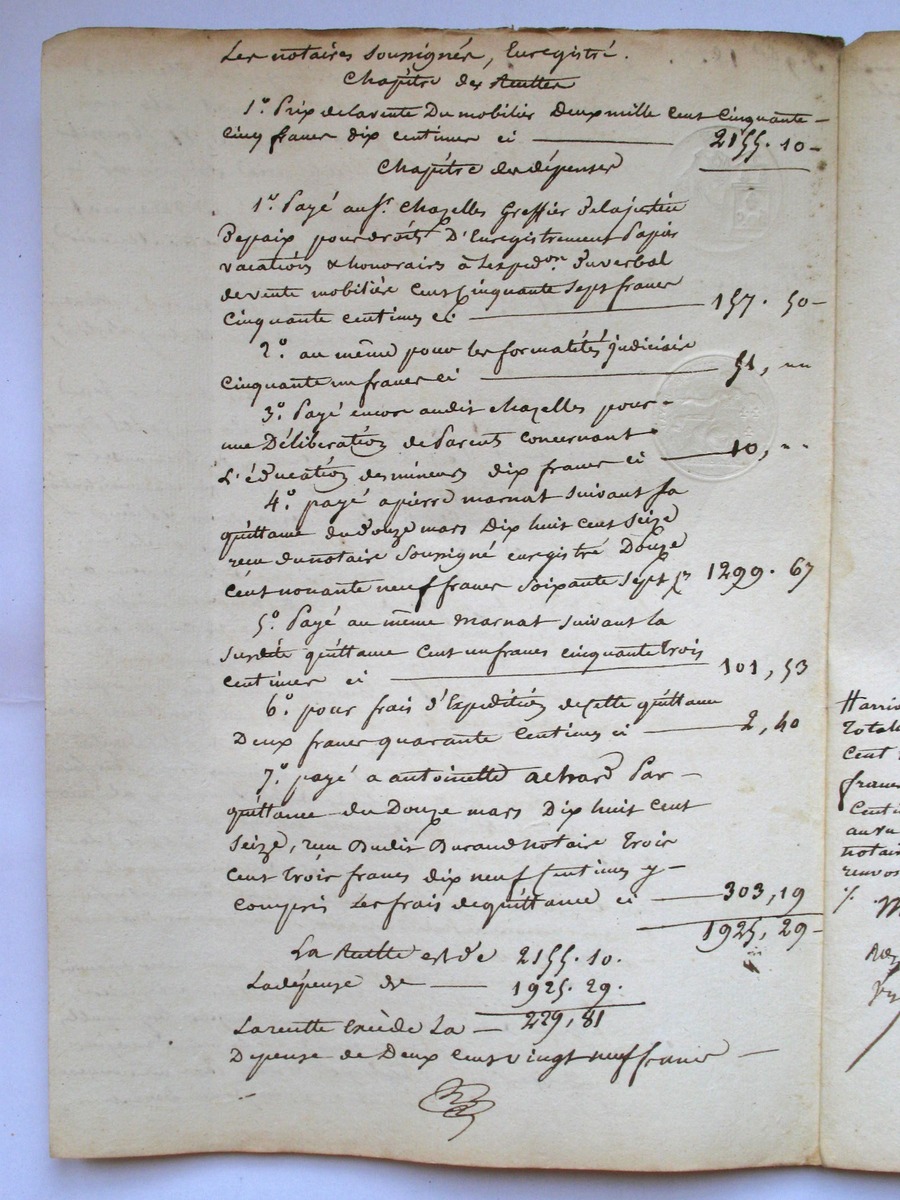 Les notaires soussignés, Enregistré.
Chapitre des Recettes
1° Prix de la vente Du mobilier Deux mille Cent Cinquante
Cinq francs dix centimes ci 2155. 10
Chapitre des dépenses
1° Payé au Sr. Chazelles Greffier De la justice
De paix pour droits D'Enregistrement Papier
vacations & honoraires à L'expedon. Du verbal
de vente mobilière Cent Cinquante Sept francs
Cinquante centimes ci 157. 50
2° au même pour les formalités judiciaire
Cinquante un francs ci 51, "
3° Payé encore audit Chazelles pour
une Délibération de Parents concernant
L'éducation des mineurs dix francs ci 10, "
4° payé a pierre marnat suivant sa
quittance du Douze mars Dix huit Cent Seize
recu du notaire Soussigné enregistré Douze
Cent nonante neuf francs Soixante Sept 1299. 67
5° Payé au même marnat suivant la
susdite quittance Cent un francs cinquante trois
centimes ci 101, 53
6° pour frais d'Expédition de cette quittance
Deux francs quarante Centimes ci 2, 40
7° payé a antoinette achard Par
quittance du Douze mars Dix huit Cent
Seize, recu Dudit Durand notaire Trois
Cent trois francs dix neuf Centimes y
compris Les frais de quittance ci 303, 19
1925, 29
La Recette est de 2155. 10.
La dépense de 1925. 29.
La recette Excède La 229, 81
Depense de Deux Cent vingt neuf francs
Total
Cent
francs
Centi
notair
renvoi